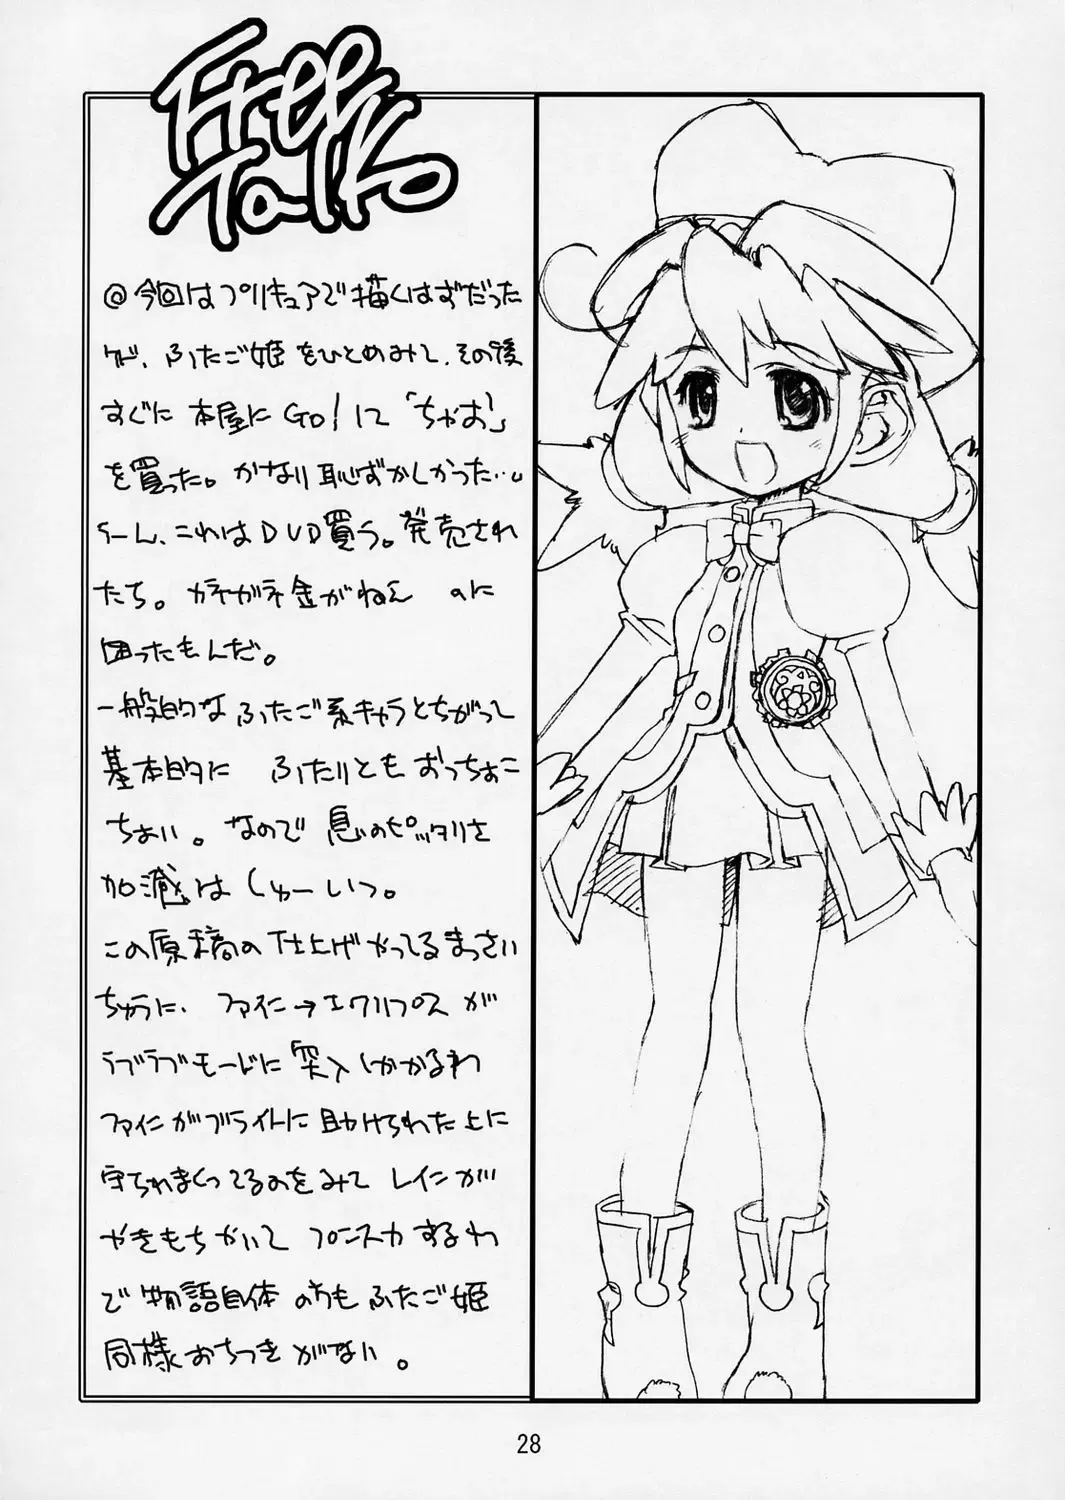 Free
Talk
@今回はプリキュアで描くはずだった
けど、ふたご姫をひとめみて、その後
すぐに本屋にGO!して「ちゃお」
を買った。かなり恥ずかしかった…。
うーん、これはDVD買う。発売され
たち。ガネガネ金がねぇ のに
困ったもんだ。
一般的なふたご系キャラとちがって
基本的に ふたりともおっちょこ
ちょい。なので 息のピッタリさ
加減はしゅーいつ。
この原稿の仕上げやってるまっさい
ちゅうに、ファイン→エクリプスが
ラブラブモードに突入しかかるわ
ファインがブライトに助けられた上に
守られまくってるのをみてレインが
やきもちやいてプンスカするわ
で物語自体の方もふたご姫
同様おちつきがない。
28